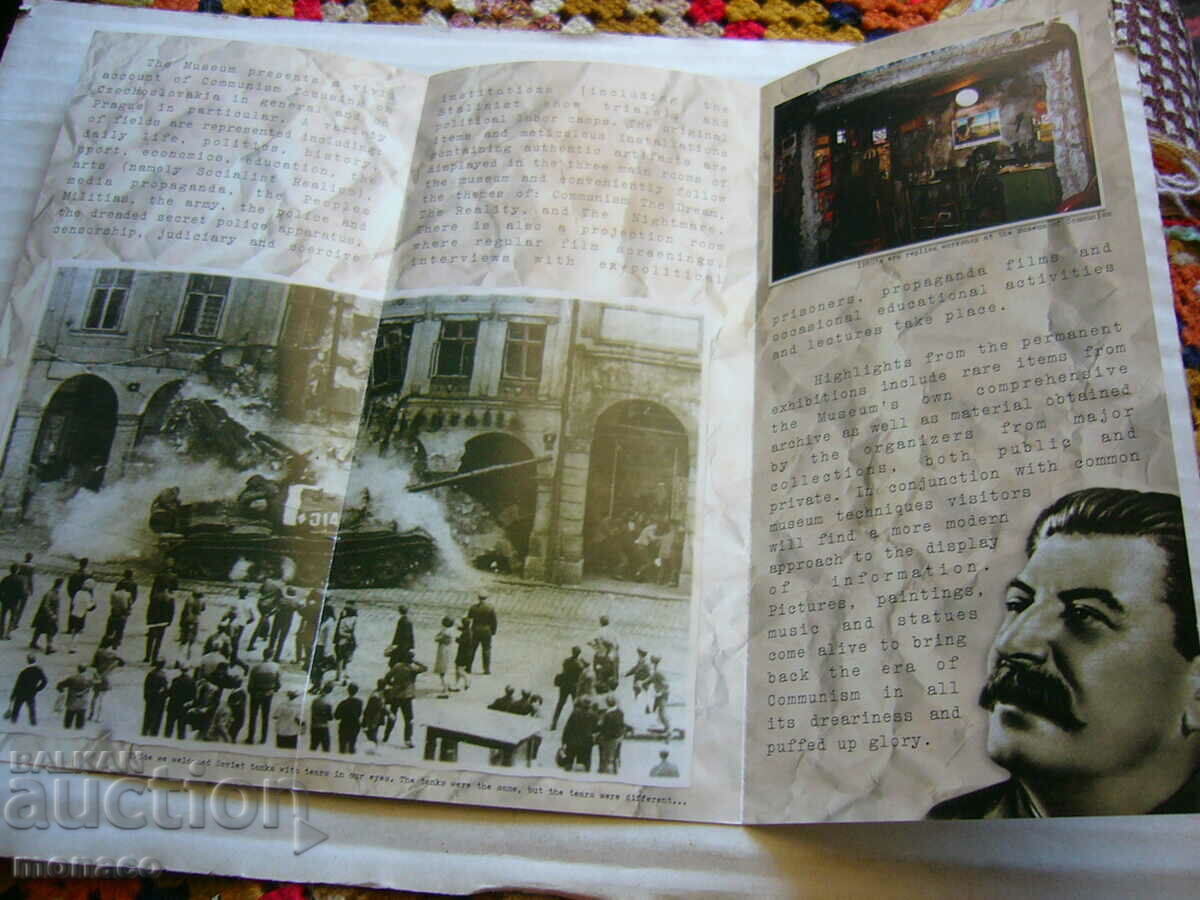 The Museum presents a vivid
account of Communism focusing on
Czechoslovakia in general and on
Prague in particular. A variety
of fields are represented including:
daily life, politics, history,
sport, economics, education, the
arts (namely Socialist Realism),
media propaganda, the Peoples
Militias, the army, the police and
the dreaded secret police apparatus,
censorship, judiciary and coercive
institutions [including the
Stalinist show trials] and
political labor camps. The original
items and meticulous installations
containing authentic artifacts are
displayed in the three main rooms of
the museum and conveniently follow
the themes of: Communism The Dream,
The Reality, and The Nightmare.
There is also a projection room
where regular film screenings,
interviews with ex-political
replica workshop at the Museum of Communism
prisoners, propaganda films and
occasional educational activities
and lectures take place.
Highlights from the permanent
exhibitions include rare items from
the Museum's own comprehensive
archive as well as material obtained
by the organizers from major
collections, both public and
private. In conjunction with common
museum techniques visitors
will find a more modern
approach to the display
of information.
Pictures, paintings,
music and statues
come alive to bring
back the era of
Communism in all
its dreariness and
puffed up glory.
we welcomed Soviet tanks with tears in our eyes. The tanks were the same, but the tears were different...
BALKAN
auction
monaco